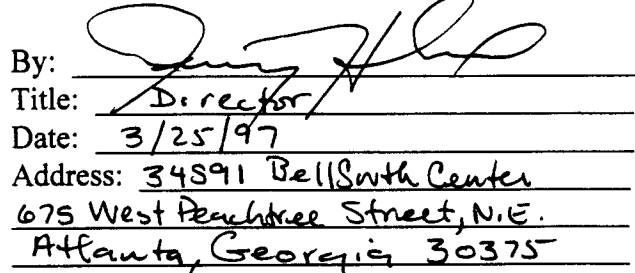 By:
Title: Director
Date: 3/25/97
Address: 34S91 BellSouth Center
675 West Peachtree Street, N.E.
Atlanta, Georgia 30375